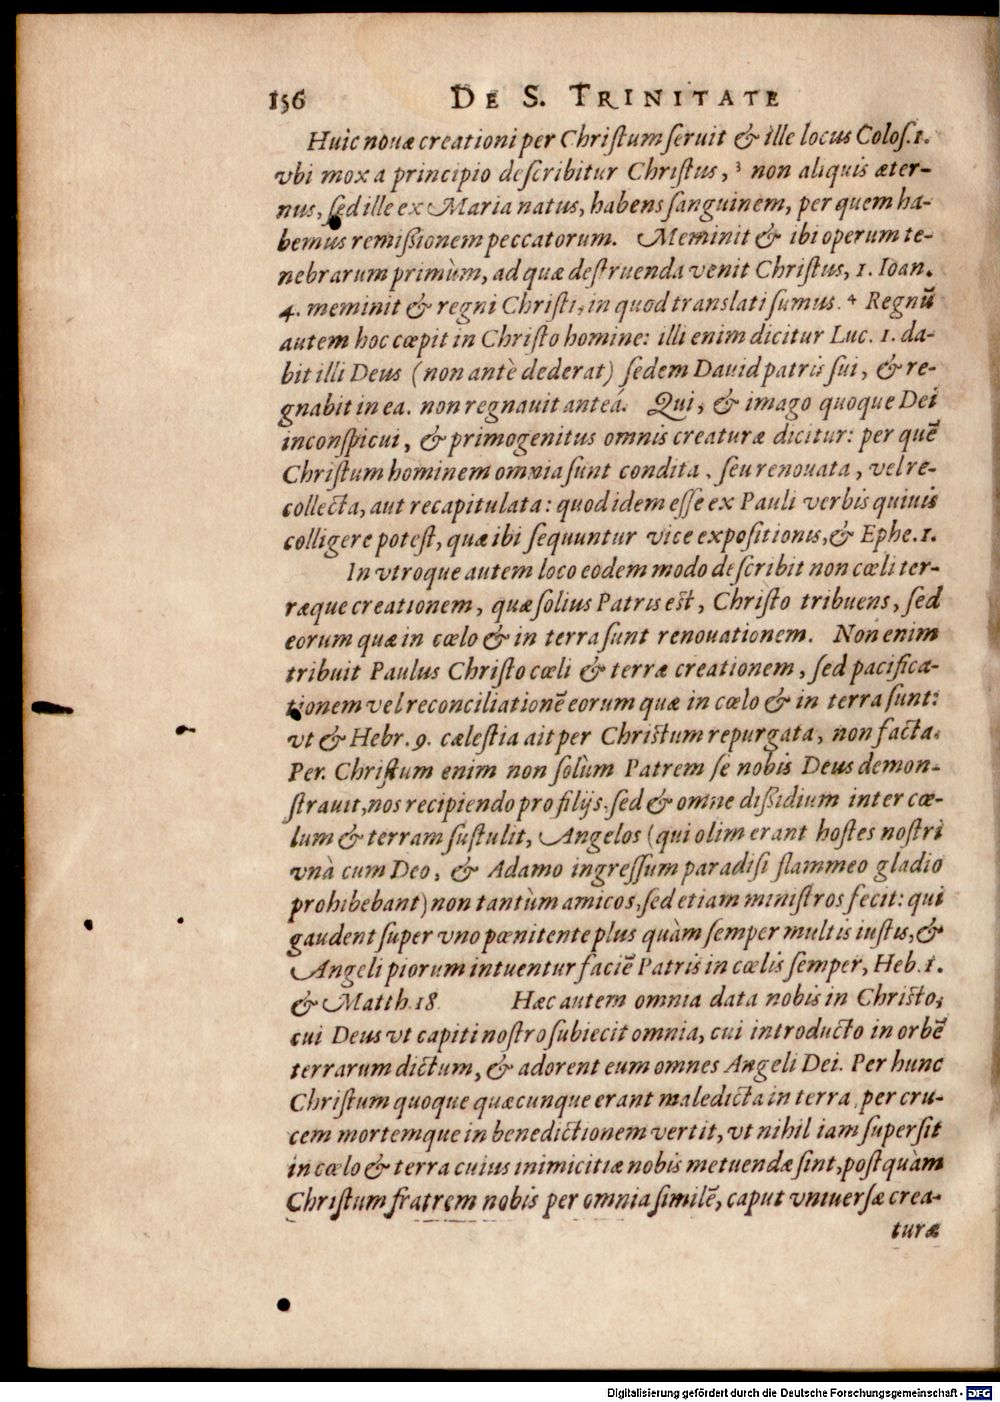 156 DE S. TRINITATE
Huic nouæ creationi per Chriſtum ſeruit & ille locus Coloſ. 1.
vbi mox a principio deſcribitur Chriſtus, ³ non aliquis æter-
nus, ſed ille ex Maria natus, habens ſanguinem, per quem ha-
bemus remißionem peccatorum. Meminit & ibi operum te-
nebrarum primùm, ad quæ deſtruenda venit Chriſtus, 1. Ioan.
4. meminit & regni Chriſti, in quod translati ſumus. ⁴ Regnū
autem hoc cœpit in Chriſto homine: illi enim dicitur Luc. 1. da-
bit illi Deus (non antè dederat) ſedem Dauid patris ſui, & re-
gnabit in ea. non regnauit anteá. Qui, & imago quoque Dei
inconſpicui, & primogenitus omnis creaturæ dicitur: per quē
Chriſtum hominem omnia ſunt condita, ſeu renouata, vel re-
collecta, aut recapitulata: quod idem eſſe ex Pauli verbis quiuis
colligere poteſt, quæ ibi ſequuntur vice expoſitionis, & Ephe. 1.
In vtroque autem loco eodem modo deſcribit non cœli ter-
ræque creationem, quæ ſolius Patris eſt, Chriſto tribuens, ſed
eorum quæ in cœlo & in terra ſunt renouationem. Non enim
tribuit Paulus Chriſto cœli & terræ creationem, ſed pacifica-
tionem vel reconciliationē eorum quæ in cœlo & in terra ſunt:
vt & Hebr. 9. cæleſtia ait per Chriſtum repurgata, non facta.
Per. Chriſtum enim non ſolùm Patrem ſe nobis Deus demon-
ſtrauit, nos recipiendo pro filijs, ſed & omne dißidium inter cœ-
lum & terram ſuſtulit, Angelos (qui olim erant hoſtes noſtri
vnà cum Deo, & Adamo ingreſſum paradiſi flammeo gladio
prohibebant) non tantùm amicos, ſed etiam miniſtros fecit: qui
gaudent ſuper vno pœnitente plus quàm ſemper multis iuſtis, &
Angeli piorum intuentur faciē Patris in cœlis ſemper, Heb. 1.
& Matth. 18. Hæc autem omnia data nobis in Chriſto,
cui Deus vt capiti noſtro ſubiecit omnia, cui introducto in orbē
terrarum dictum, & adorent eum omnes Angeli Dei. Per hunc
Chriſtum quoque quæcunque erant maledicta in terra, per cru-
cem mortemque in benedictionem vertit, vt nihil iam ſuperſit
in cœlo & terra cuius inimicitiæ nobis metuendæ ſint, poſtquàm
Chriſtum fratrem nobis per omnia ſimilē, caput vniuerſæ crea-
turæ
Digitalisierung gefördert durch die Deutsche Forschungsgemeinschaft - DFG